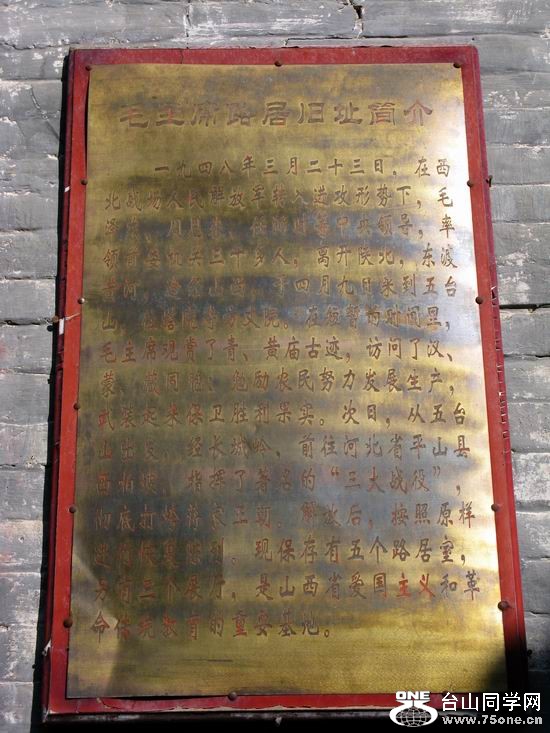 毛主席路居旧址简介
一九四八年三月二十三日，在西
北战场人民解放军转入进攻形势下，毛
泽东、周恩来、任弼时等中央领导，率
领前委机关二十多人，离开陕北，东渡
黄河，途经山西，于四月九日来到五台
山，在塔院寺方丈院。在短暂的时间里，
毛主席观赏了青、黄庙古迹，访问了汉、
蒙、藏同胞，勉励农民努力发展生产，
武装起来保卫胜利果实。次日，从五台
山出发，经长城岭，前往河北省平山县
西柏坡，指挥了著名的“三大战役”，
彻底打垮蒋家王朝。解放后，按照原样
进行恢复陈列。现保存有五个路居室，
另有三个展厅，是山西省爱国主义和革
命传统教育的重要基地。
ONE
台山同学网
www.75one.cn